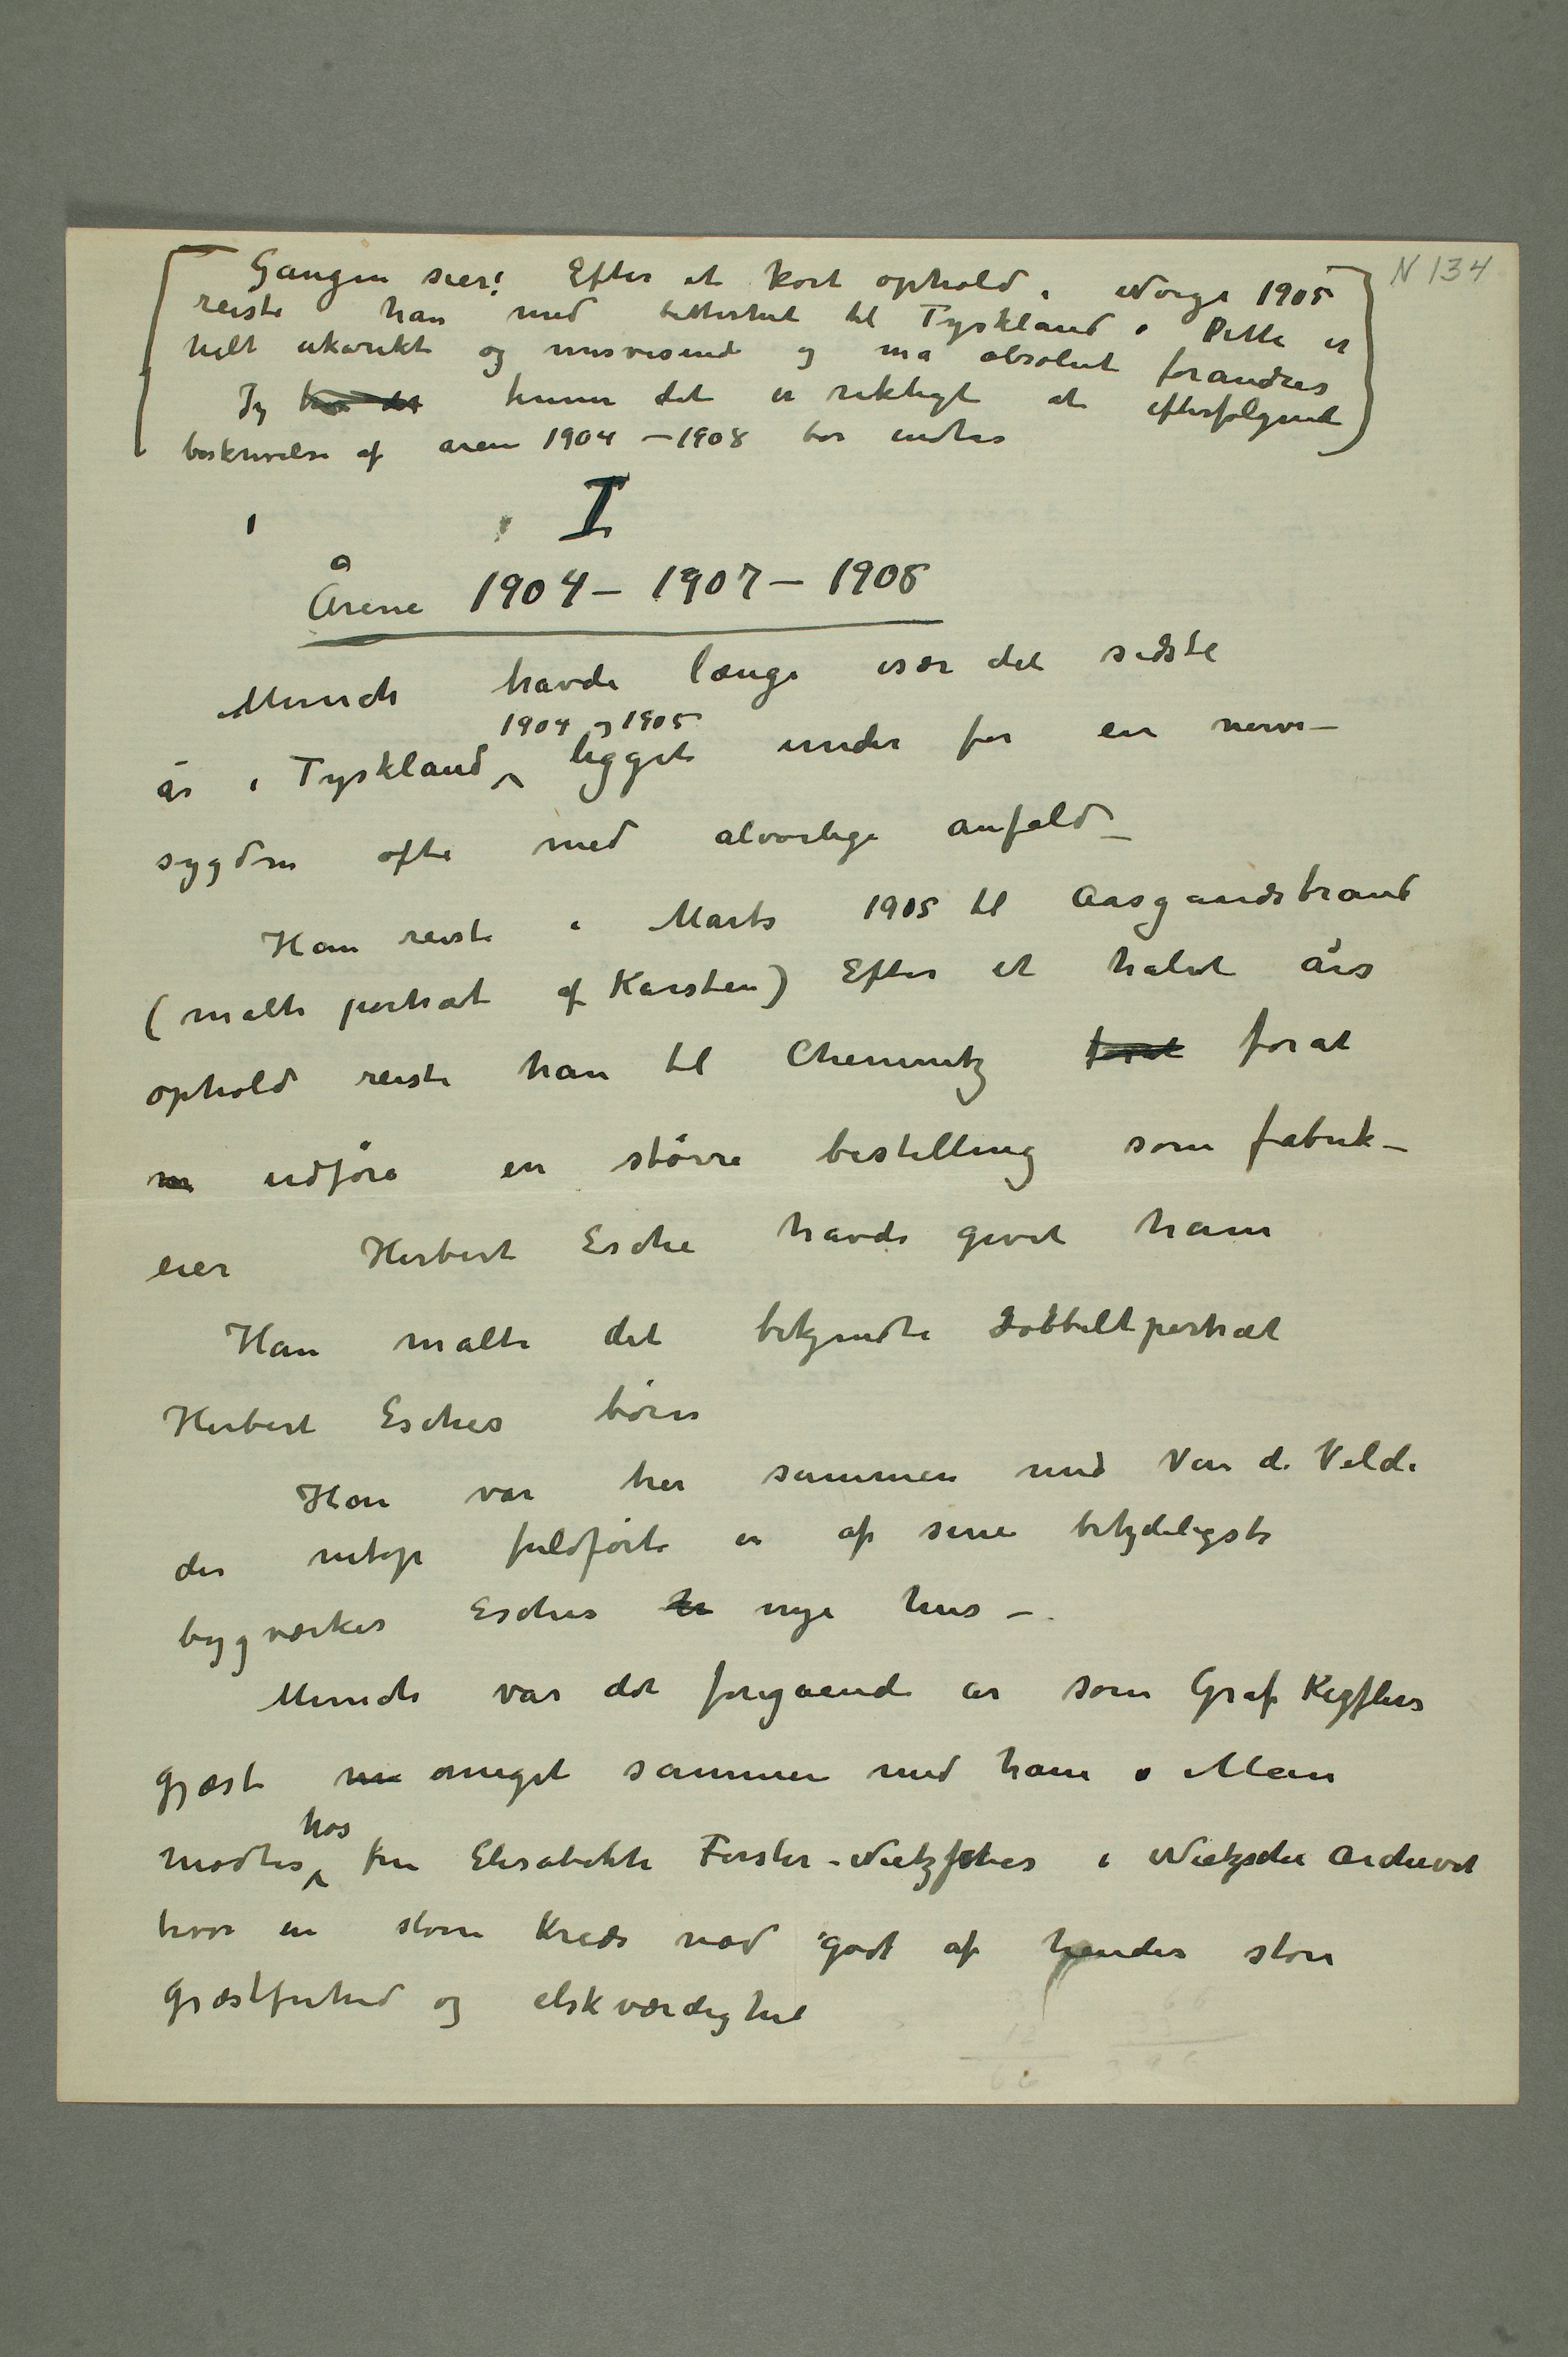 N 134
Gaugin sier! Efter et kort ophold i Norge 1905
reiste han med bitterhet til Tyskland. Dette er
helt ukorrekt og misvisende og må absolut forandres
Jeg finner det er riktigt at efterfølgende
beskrivelse af årene 1904 – 1908 bør indtas
I
Årene 1904 – 1907 – 1908
Munch havde længe især det sidste
år i Tyskland 1904 og 1905 ligget under for en nerve-
sygdom ofte med alvorlige anfald –
Han reiste i Marts 1905 til Aasgaardstrand
(malte portræt af Karsten) Efter et halvt års
ophold reiste han til Chemnitz forat forat
udføre en større bestilling som fabrik-
eier Herbert Esche havde givet ham
Han malte det bekjendte dobbeltportræt
Herbert Esches børn
Han var her sammen med Van de Velde
der netop fuldførte en af sine betydeligste
bygværker Esches nye hus –
Munch var det foregående år som Graf Keſſlers
gjæst meget sammen med ham. Man
mødtes hos fru Elisabethe Förster-Nietzsches i Nietzsche Archivet
hvor en større kreds nød godt af hendes store
gjæstfrihed og elskværdighet